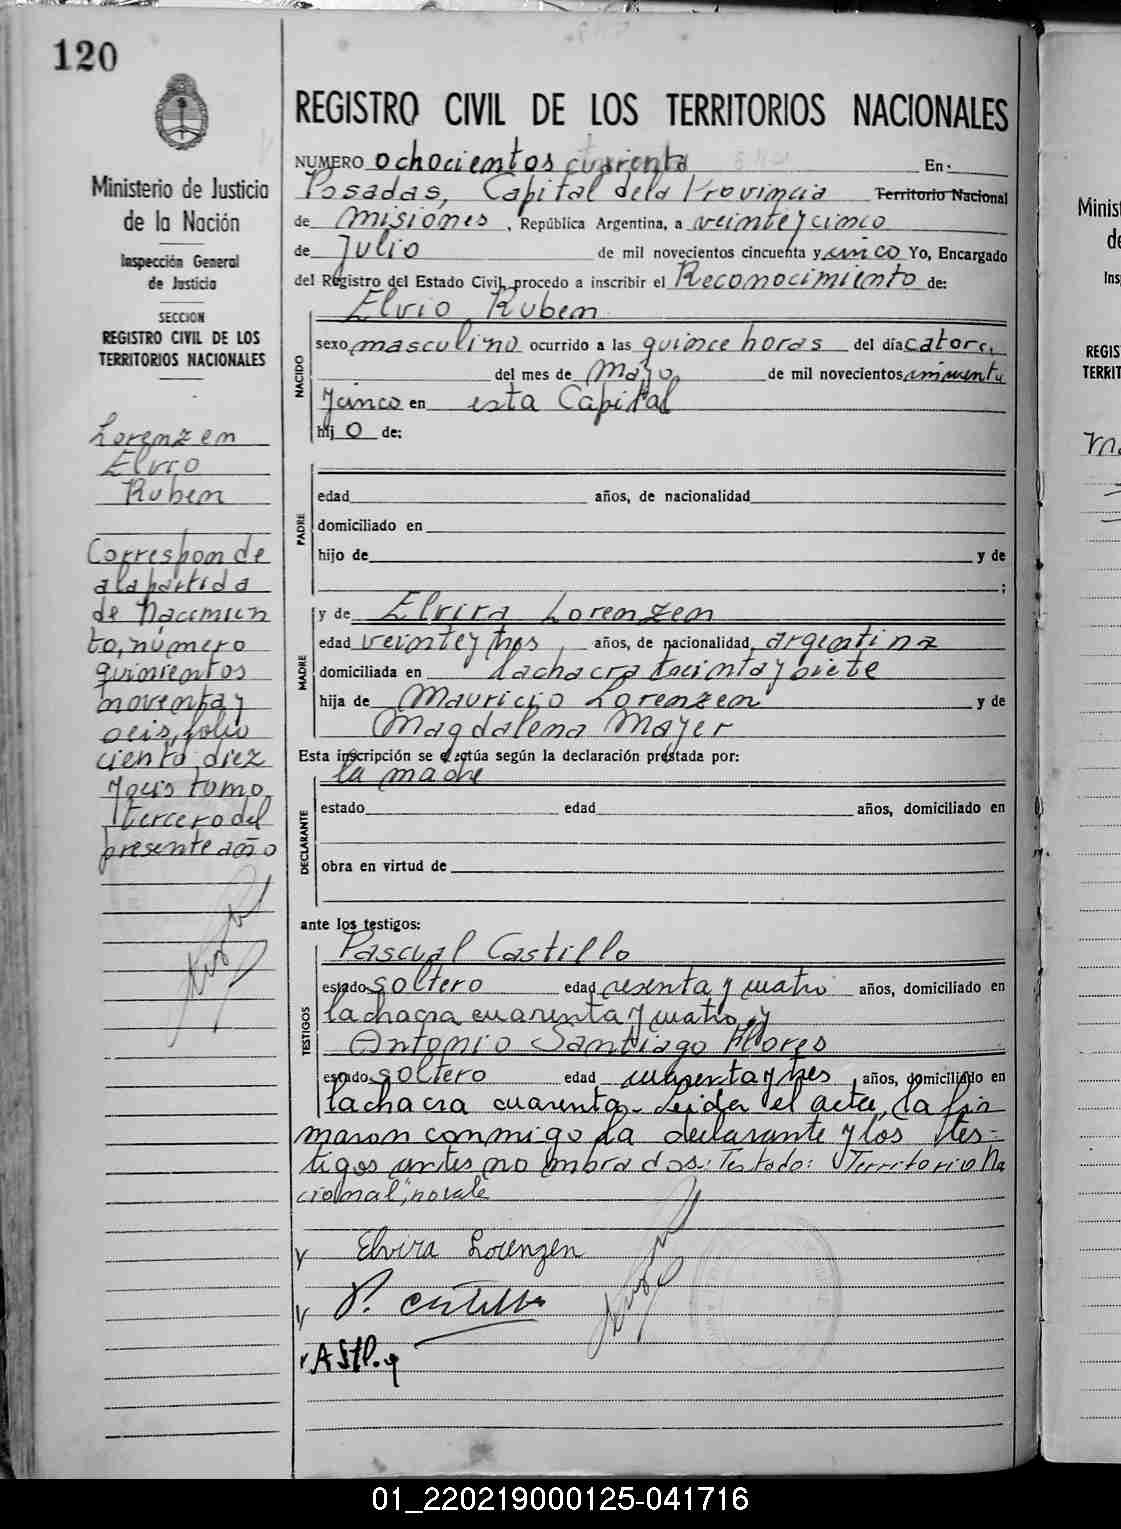 120
Ministerio de Justicia
de la Nación
Inspección General
de Justicia
SECCION
REGISTRO CIVIL DE LOS
TERRITORIOS NACIONALES
Lorenzen
Elvio
Ruben
Corresponde
a la partida
de Nacimien
to, número
quinientos
noventa y
seis, folio
ciento diez
y seis tomo
tercero del
presente año
REGISTRO CIVIL DE LOS TERRITORIOS NACIONALES
NUMERO ochocientos cuarenta En
Posadas, Capital de la Provincia Territorio Nacional
de Misiones, República Argentina, a veinte y cinco
de Julio de mil novecientos cincuenta y cinco Yo, Encargado
del Registro del Estado Civil, procedo a inscribir el Reconocimiento de:
Elvio Ruben
NACIDO
sexo masculino ocurrido a las quince horas del día catorce
del mes de Mayo de mil novecientos cincuenta
y cinco en esta Capital
hijo de:
PADRE
edad años, de nacionalidad
domiciliado en
hijo de y de
;
MADRE
y de Elvira Lorenzen
edad veinte y tres años, de nacionalidad argentina
domiciliada en la chacra treinta y siete
hija de Mauricio Lorenzen y de
Magdalena Mayer
Esta inscripción se efectúa según la declaración prestada por:
la madre
DECLARANTE
estado edad años, domiciliado en
obra en virtud de
ante los testigos:
TESTIGOS
Pascual Castillo
estado soltero edad sesenta y cuatro años, domiciliado en
la chacra cuarenta y cuatro, y
Antonio Santiago Flores
estado soltero edad cuarenta y tres, años, domiciliado en
la chacra cuarenta. Leida el acta, la fir
maron conmigo la declarante y los tes-
tigos antes nombrados: Testado: "Territorio Na
cional", no vale
Elvira Lorenzen
P. Castillo
Minist
de
Ins
REGIS
TERRIT
01_220219000125-041716